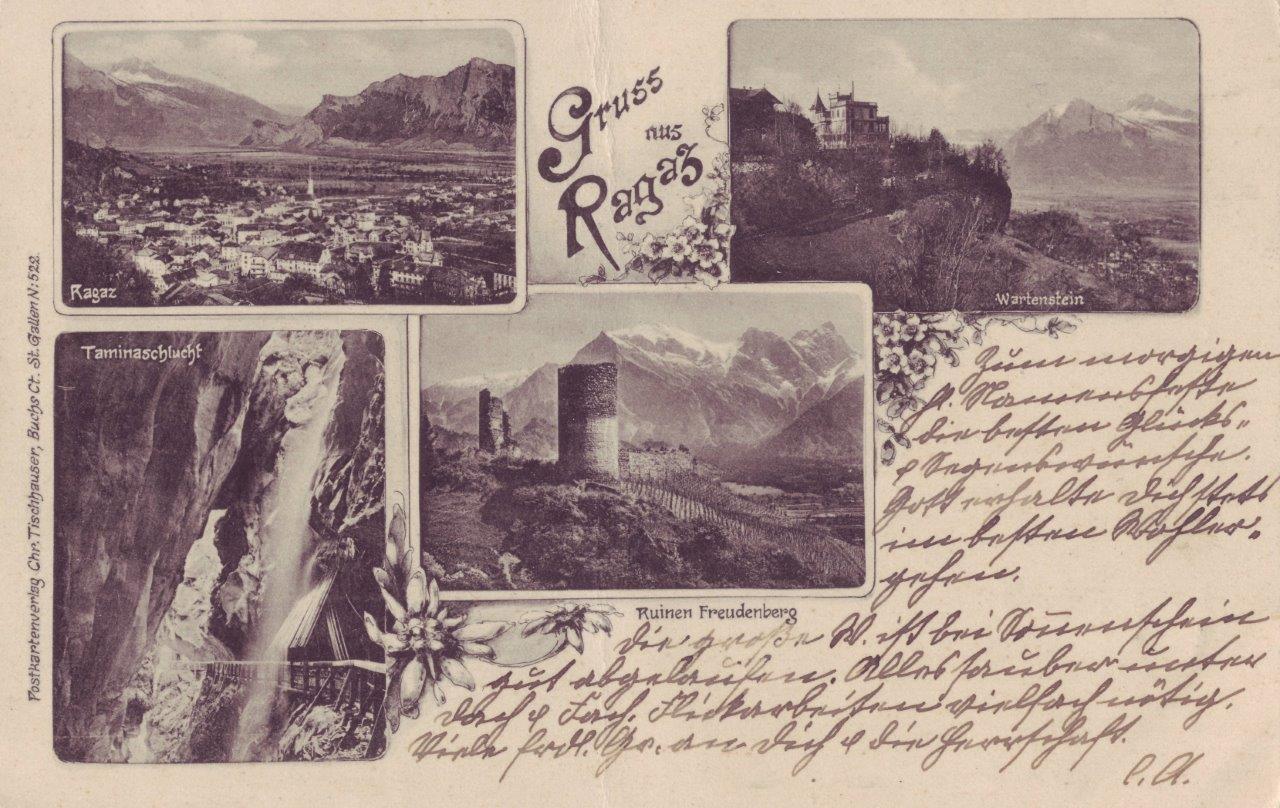 Gruss
aus
Ragaz
Ragaz
Wartenstein
Taminaschlucht
Ruinen Freudenberg
Postkartenverlag Chr. Tischhauser, Buchs Ct. St. Gallen N: 522.
Zum morgigen
hl. Namensfeste
die besten Glücks-
& Segenswünsche.
Gott erhalte Dich stets
im besten Wohler-
gehen.
Die große W. ist bei Sonnenschein
gut abgelaufen. Alles sauber unter
Dach & Fach. Flickarbeiten vielfach nötig.
Viele frdl. Gr. an Dich & die Herrschaft.
C. A.